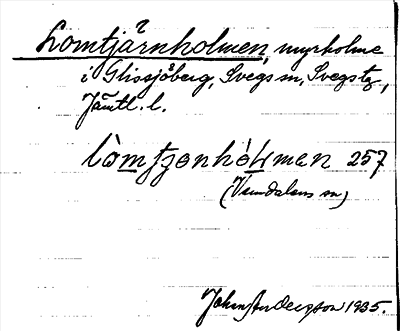 Lomtjärnholmen, myrholme
i Glissjöberg, Svegs sn, Svegs tg,
Jämtl. l.
lòmtʃɛnhòLmen 257
(Vemdalens sn)
John Anderzon 1935.